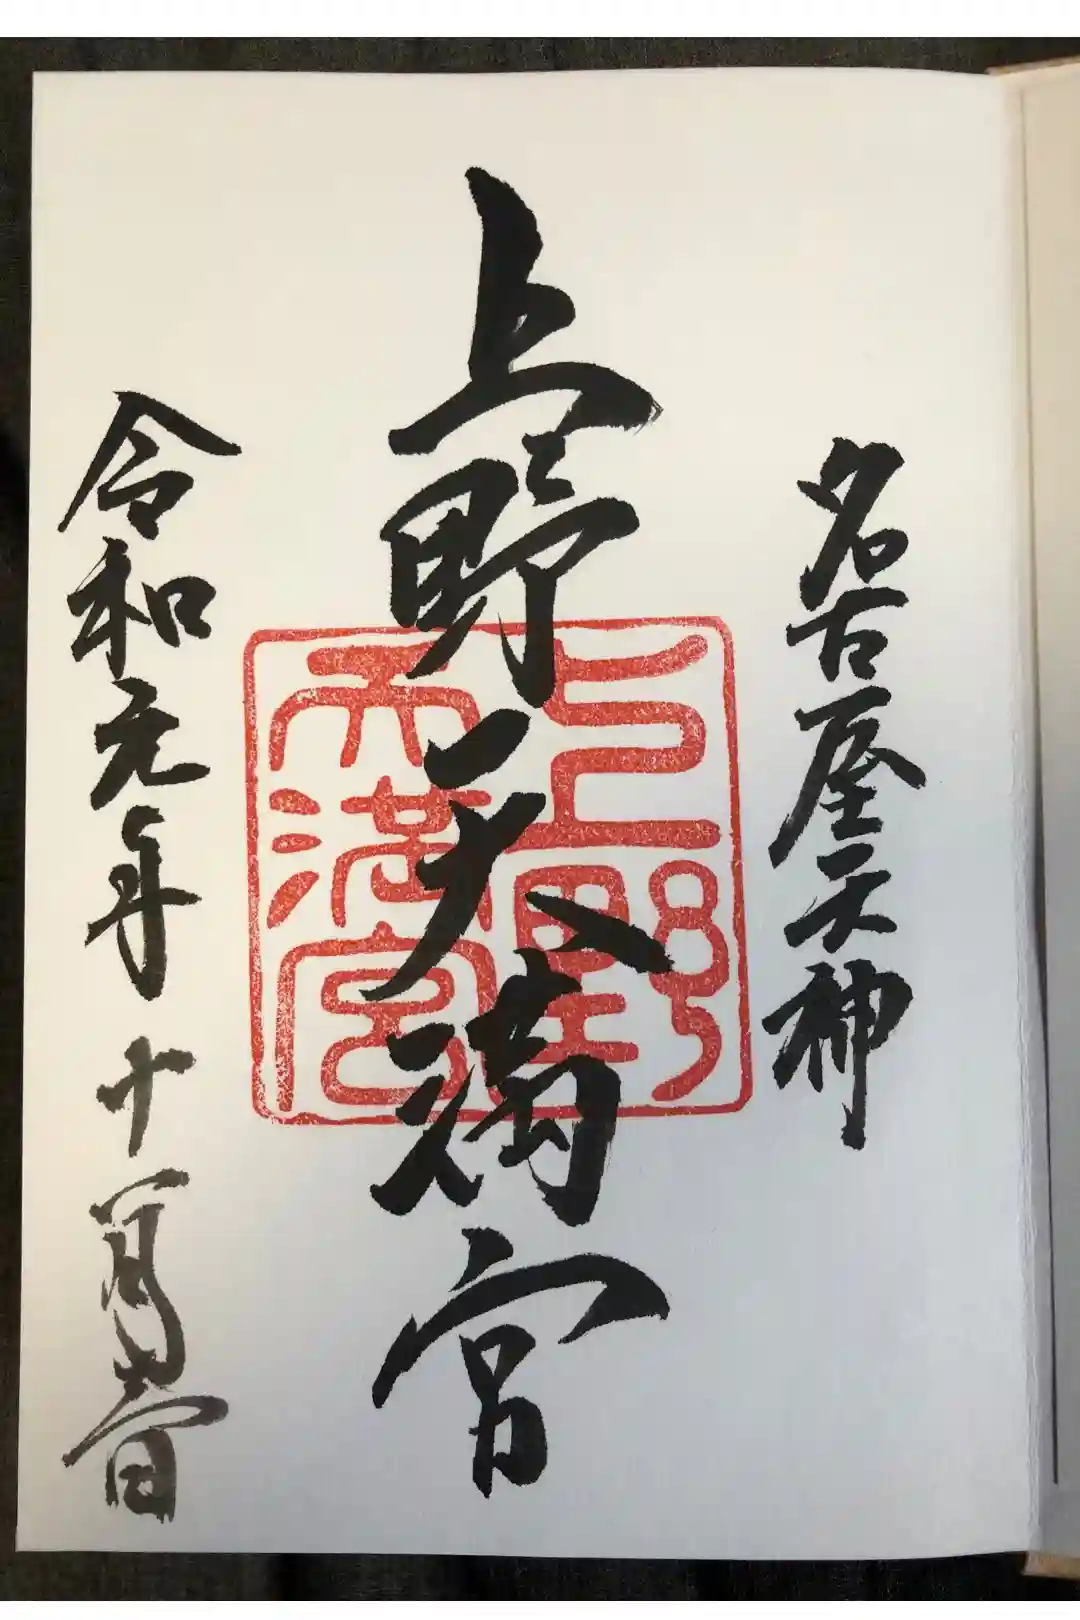 名古屋天神
上野天満宮
令和元年十一月
上野
天満宮